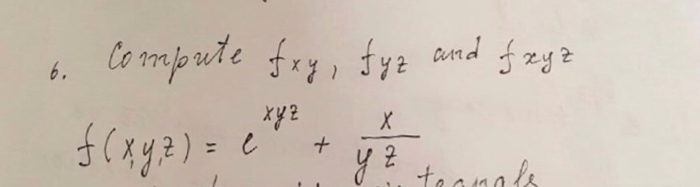 6. Compute fxy, fyz and fxyz
f(x,y,z) = e^xyz + x/yz